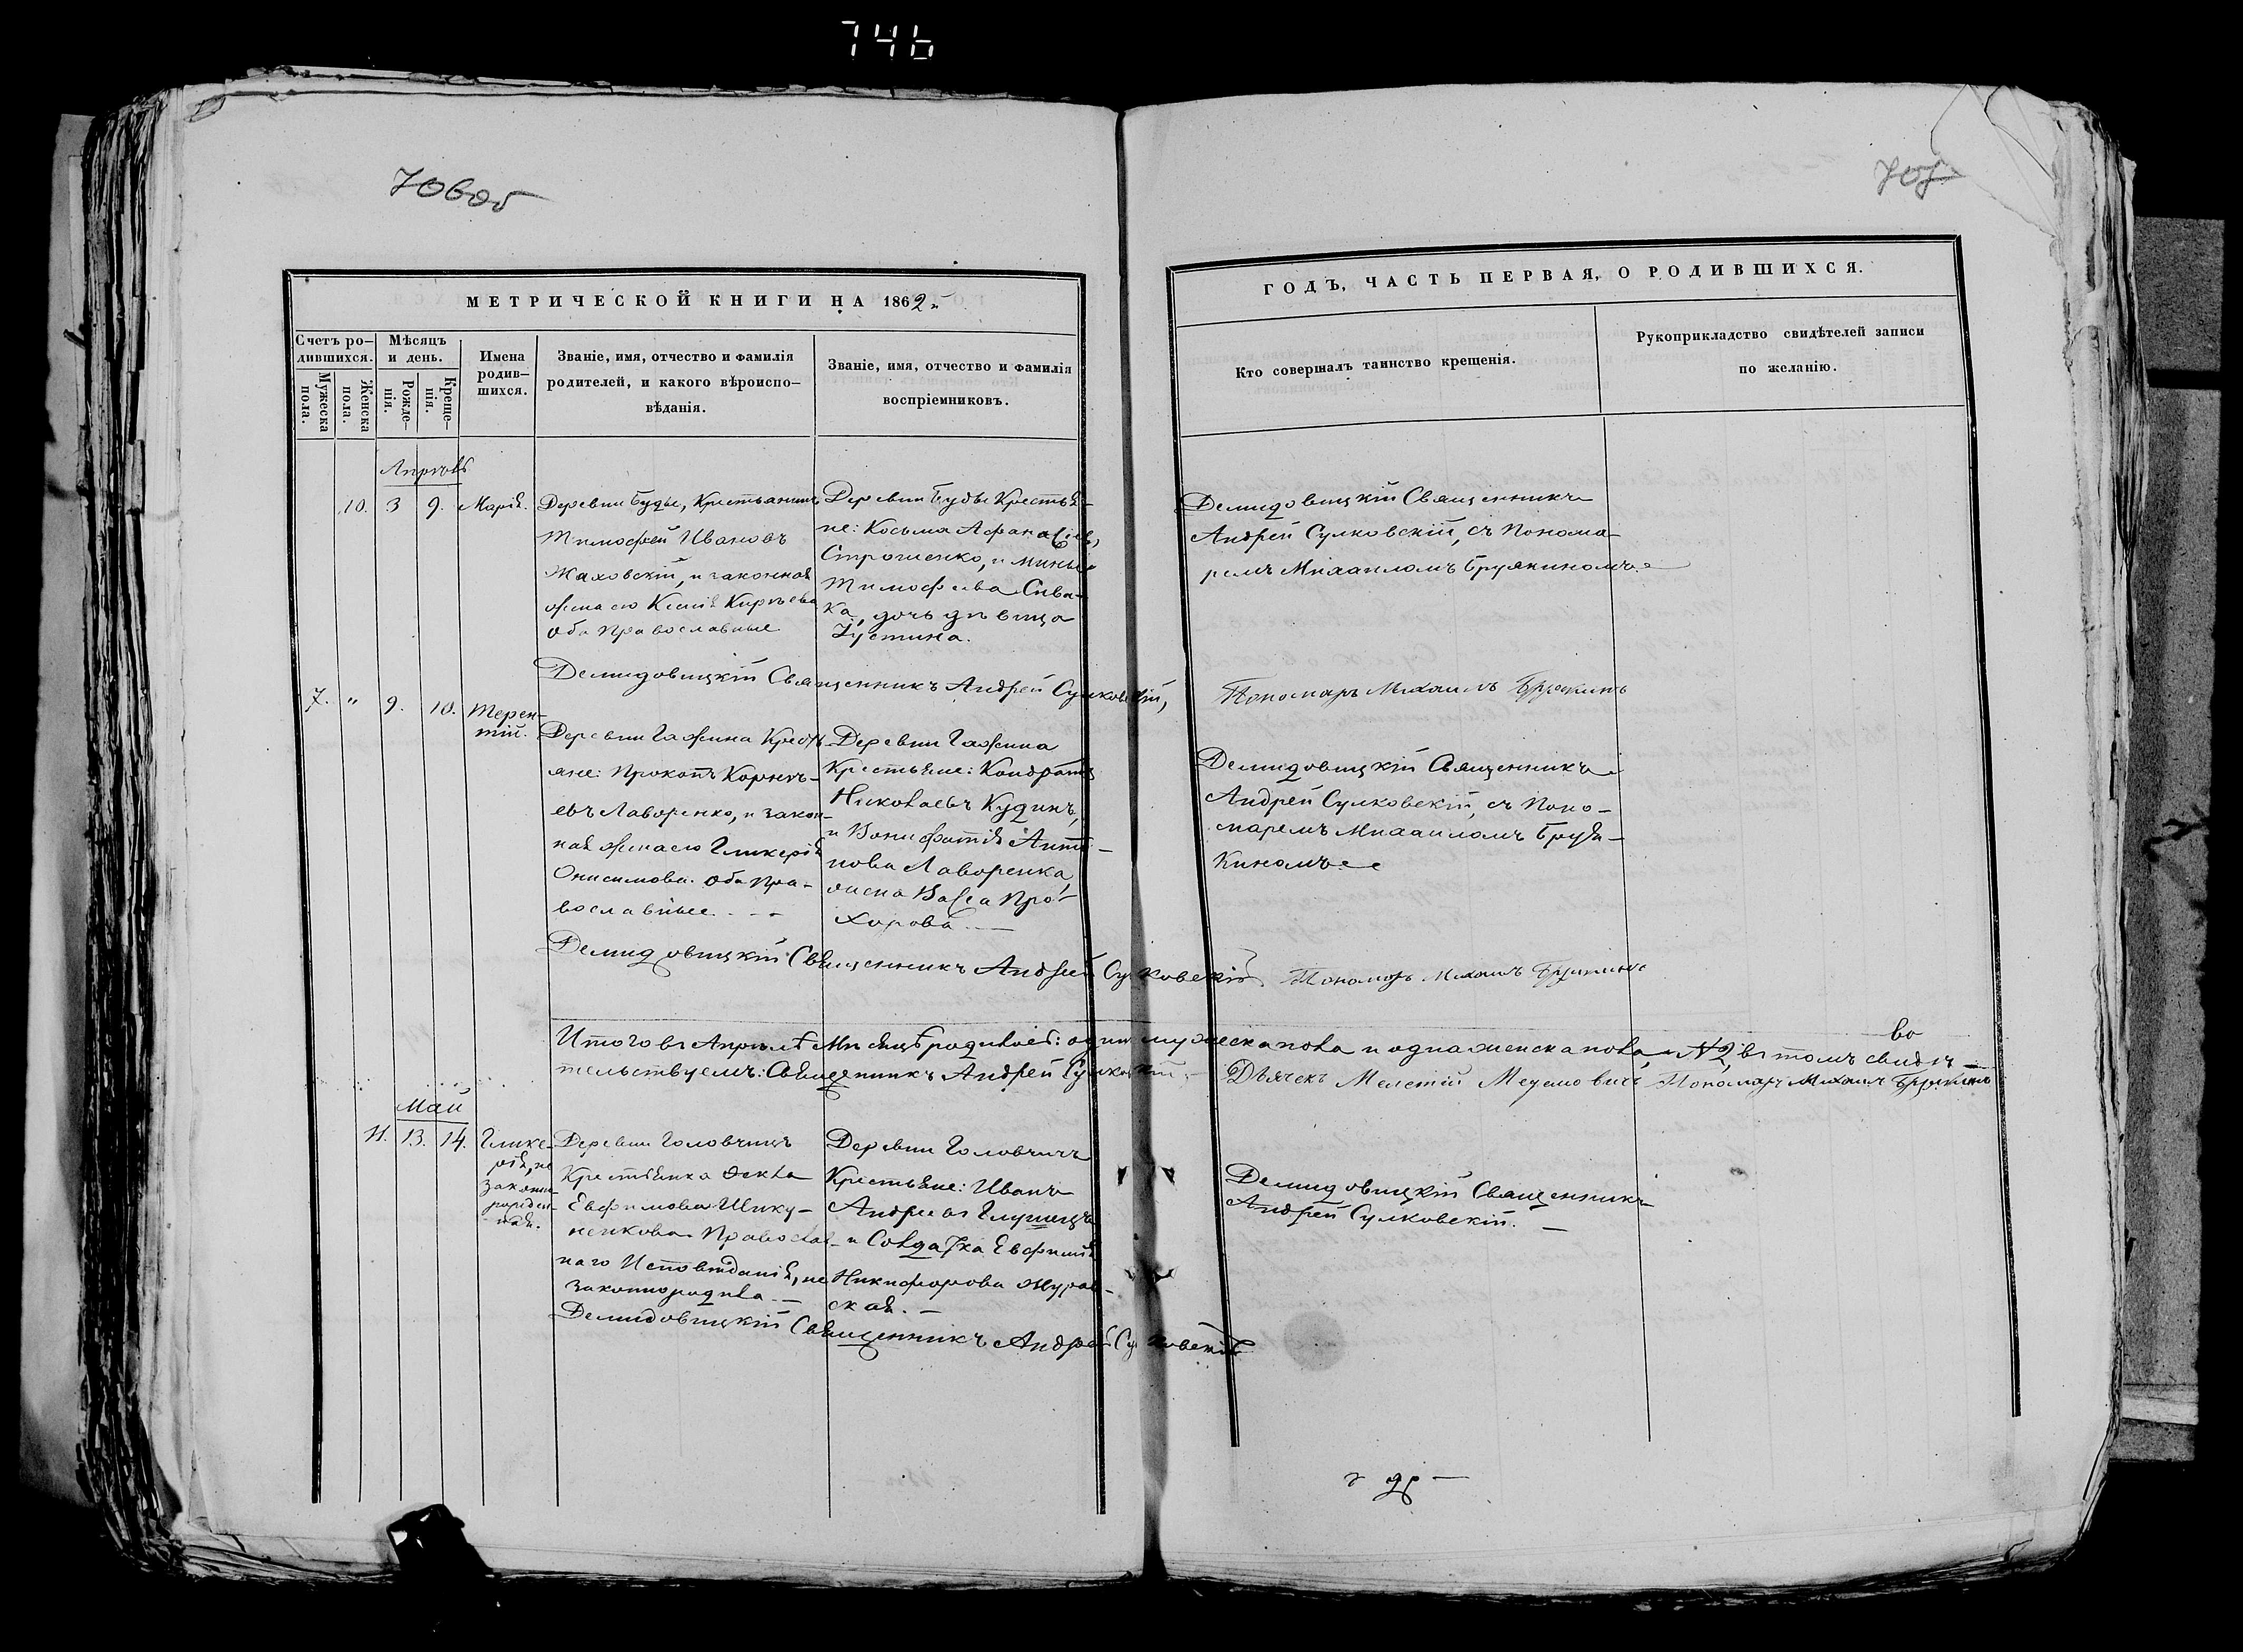 746
706об
707
МЕТРИЧЕСКОЙ КНИГИ НА 1862
ГОДЪ, ЧАСТЬ ПЕРВАЯ, О РОДИВШИХСЯ.
Счетъ ро-
дившихся.
Мужеска
пола.
Женска
пола.
Мѣсяцъ
и день.
Рожде-
нія.
Креще-
нія.
Имена
родив-
шихся.
Званіе, имя, отчество и фамилія
родителей, и какого вѣроиспо-
вѣданія.
Званіе, имя, отчество и фамилія
воспріемниковъ.
Кто совершалъ таинство крещенія.
Рукоприкладство свидѣтелей записи
по желанію.
Апрѣль
10. 3 9. Марія.
Деревни Буды, Крестьянинъ
Тимофей Ивановъ
Жаховскій, и законная
жена его Ксенія Кирѣева
оба Православные
Деревни Буды Крестья-
не: Косьма Афанасіевъ
Строченко, и Мины
Тимофѣева Сива-
ка, дочь дѣвица
Іустина.
Демидовицкій Священникъ
Андрей Сулковскій, съ Понома-
ремъ Михаиломъ Брузкиномъ
Демидовицкій Священникъ Андрей Сулковскій,
Пономарь Михаилъ Брузкинъ
7. " 9. 10. Терен-
тій.
Деревни Гажина Кресть-
яне: Прокопъ Корнѣ-
евъ Лаворенко, и закон-
ная жена его Гликерія
Онисимова. Оба Пра-
вославные
Деревни Гажина
Крестьяне: Кондратъ
Николаевъ Кудинъ,
и Вонифатія Анти-
пова Лаворенка,
жена Васса Про-
хорова
Демидовицкій Священникъ
Андрей Сулковскій, съ Поно-
маремъ Михаиломъ Бруз-
киномъ
Демидовицкій Священникъ Андрей Сулковскій
Пономарь Михаилъ Брузкинъ
Итого въ Апрѣлѣ Мѣсяцѣ родилось: одинъ мужеска пола и одна женска пола, №2, въ томъ свидѣ-
во
тельствуемъ: Священникъ Андрей Сулковскій
Дьячекъ Мелетій
Пономарь Михаилъ Брузкинъ
Май
11. 13. 14. Глике-
рія, не
законно-
рожден-
ная.
Деревни Головчицъ
Крестьянка Ѳекла
Евфимова Шику-
ненкова Православ-
наго Исповѣданія, не
законно родила
Деревни Головчицъ
Крестьяне: Иванъ
Андреевъ Глушецъ
и Солдатка Евфимія
Никифорова Журав-
ская.
Демидовицкій Священникъ
Андрей Сулковскій.
Демидовицкій Священникъ Андрей Сулковскій